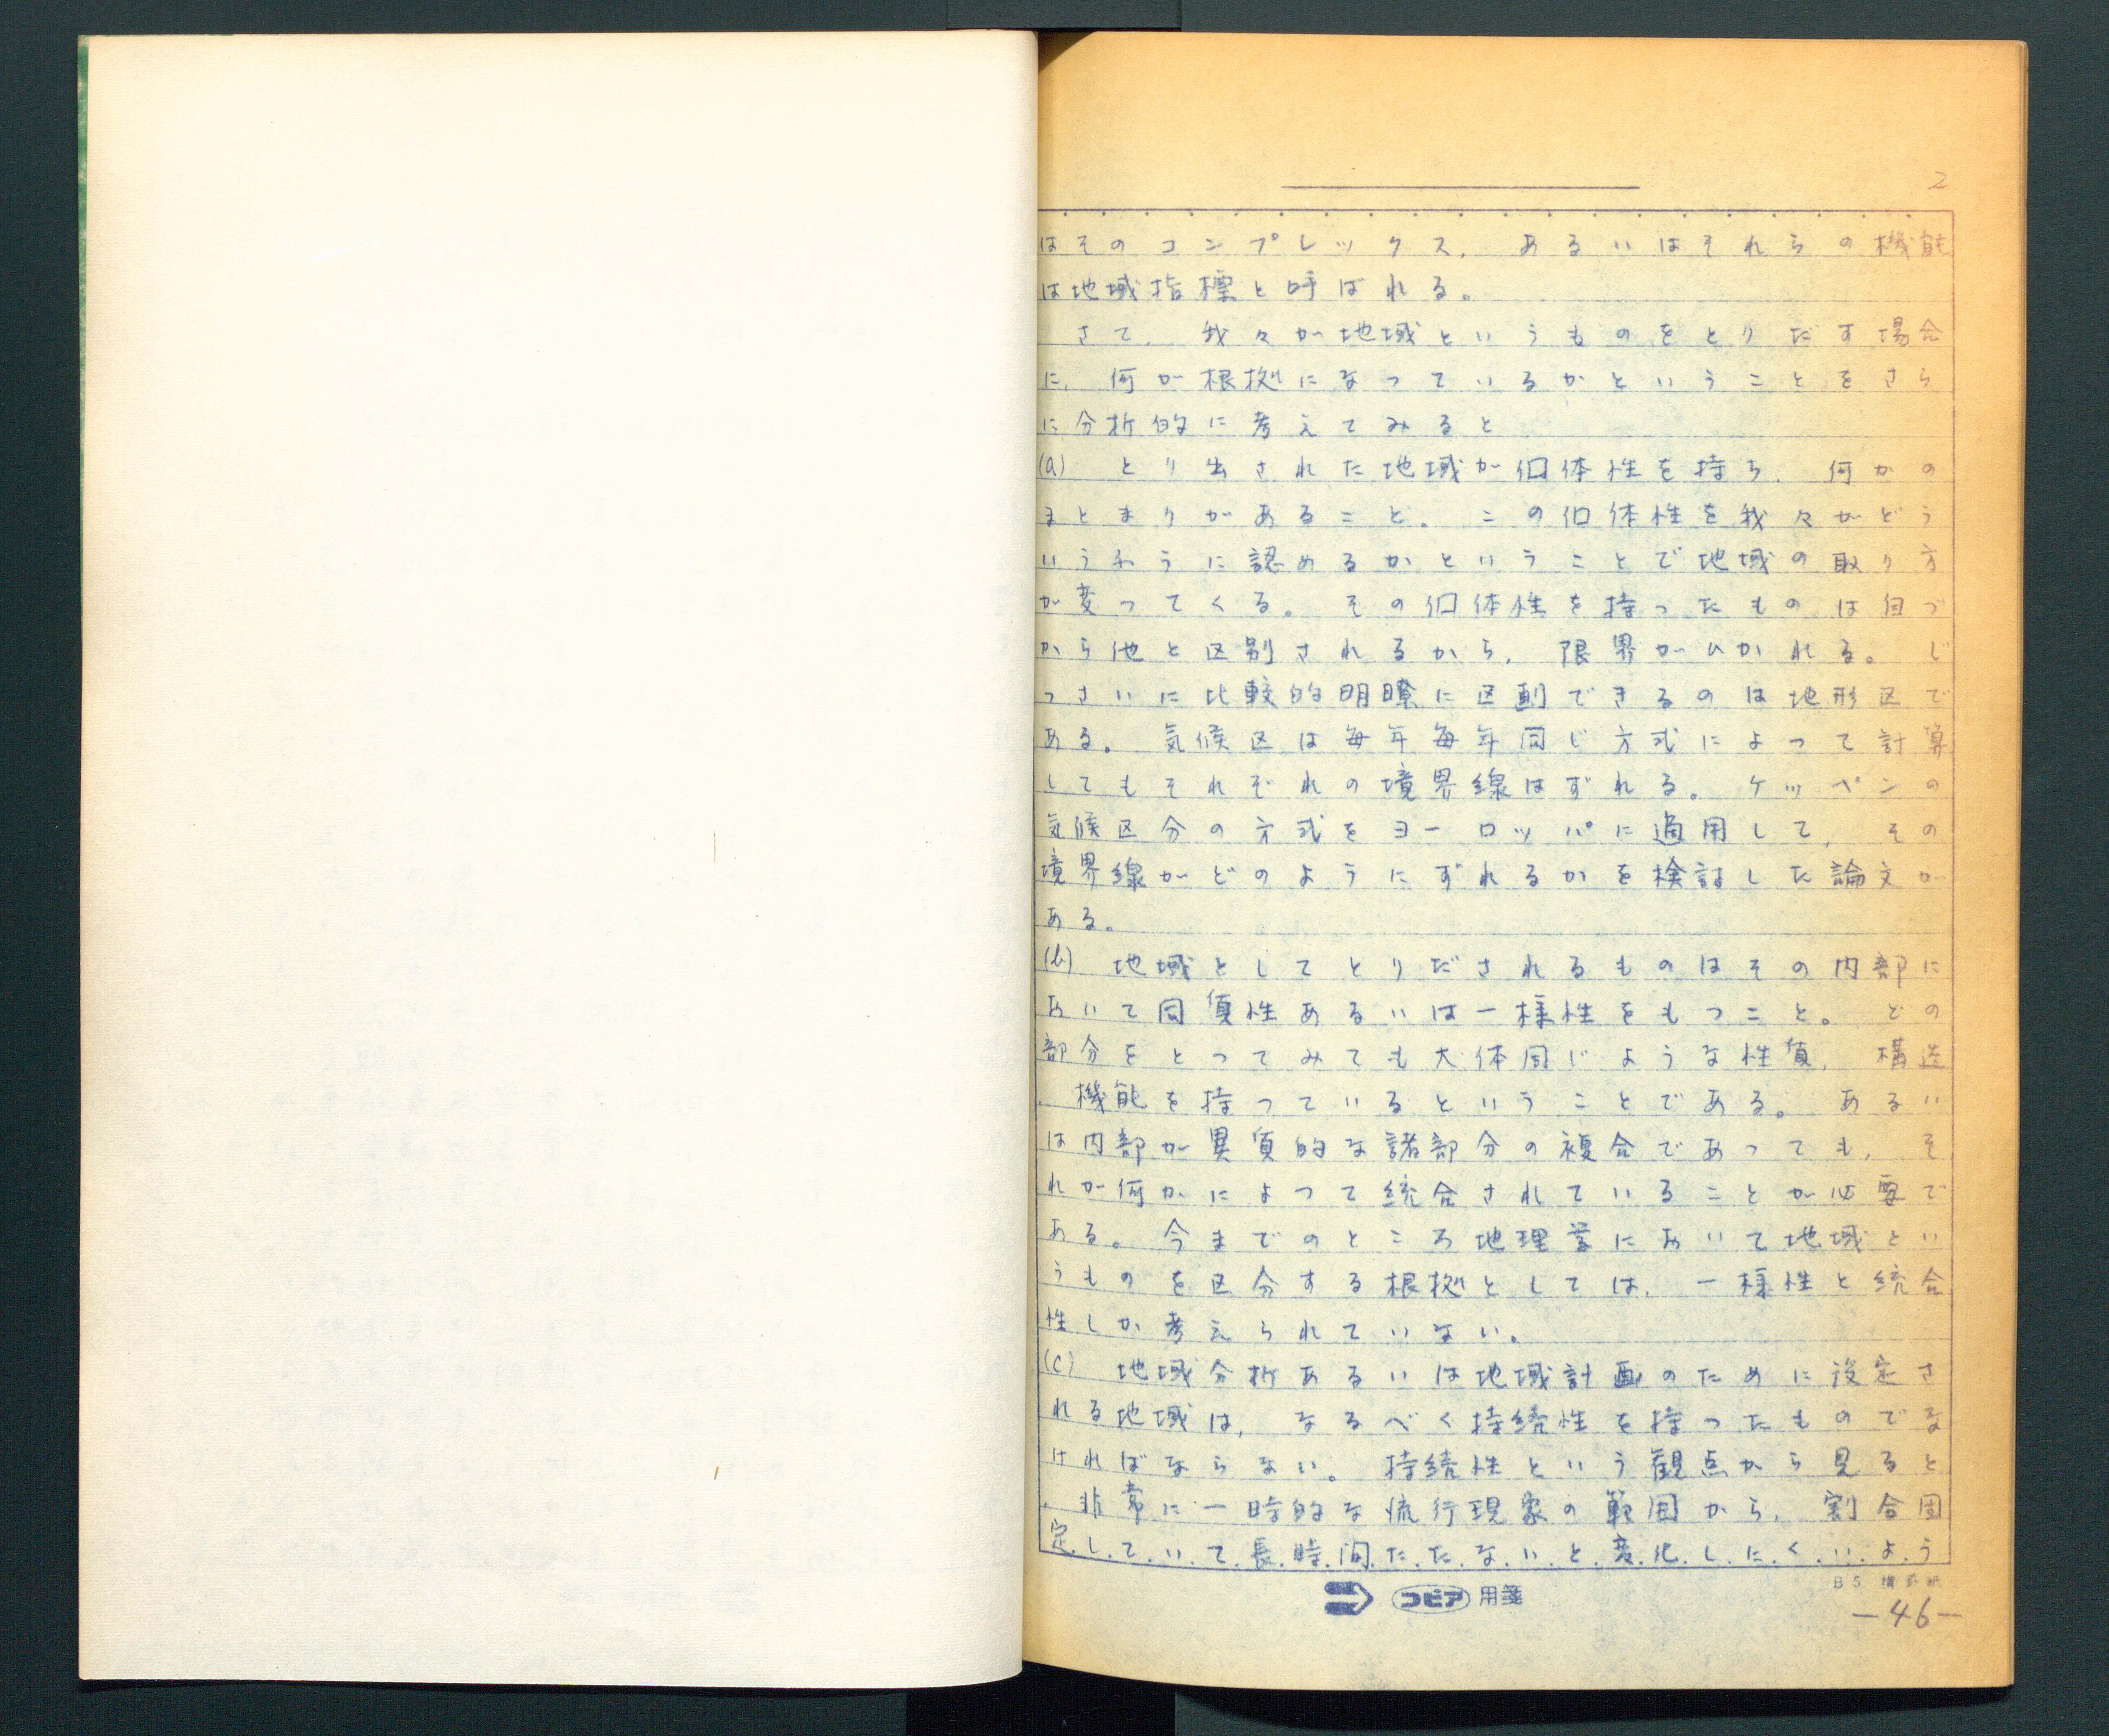 2
はそのコンプレックス、あるいはそれらの機能
は地域指標と呼ばれる。
さて、我々が地域というものをとりだす場合
に、何が根拠になっているかということをさら
に分析的に考えてみると
(a) とり出された地域が個体性を持ち、何かの
まとまりがあること。この個体性を我々がどう
いうふうに認めるかということで地域の取り方
が変ってくる。その個体性を持ったものは自づ
から他と区別されるから、限界がひかれる。じ
っさいに比較的明瞭に区劃できるのは地形区で
ある。気候区は毎年毎年同じ方式によって計算
してもそれぞれの境界線はずれる。ケッペンの
気候区分の方式をヨーロッパに適用して、その
境界線がどのようにずれるかを検討した論文が
ある。
(b) 地域としてとりだされるものはその内部に
おいて同質性あるいは一様性をもつこと。どの
部分をとってみても大体同じような性質、構造
、機能を持っているということである。あるい
は内部が異質的な諸部分の複合であっても、そ
れが何かによって統合されていることが必要で
ある。今までのところ地理学において地域とい
うものを区分する根拠としては、一様性と統合
性しか考えられていない。
(c) 地域分析あるいは地域計画のために設定さ
れる地域は、なるべく持続性を持ったものでな
ければならない。持続性という観点から見ると
、非常に一時的な流行現象の範囲から、割合固
定していて長時間たたないと変化しにくいよう
コピア用箋
B5 横罫紙
—46—